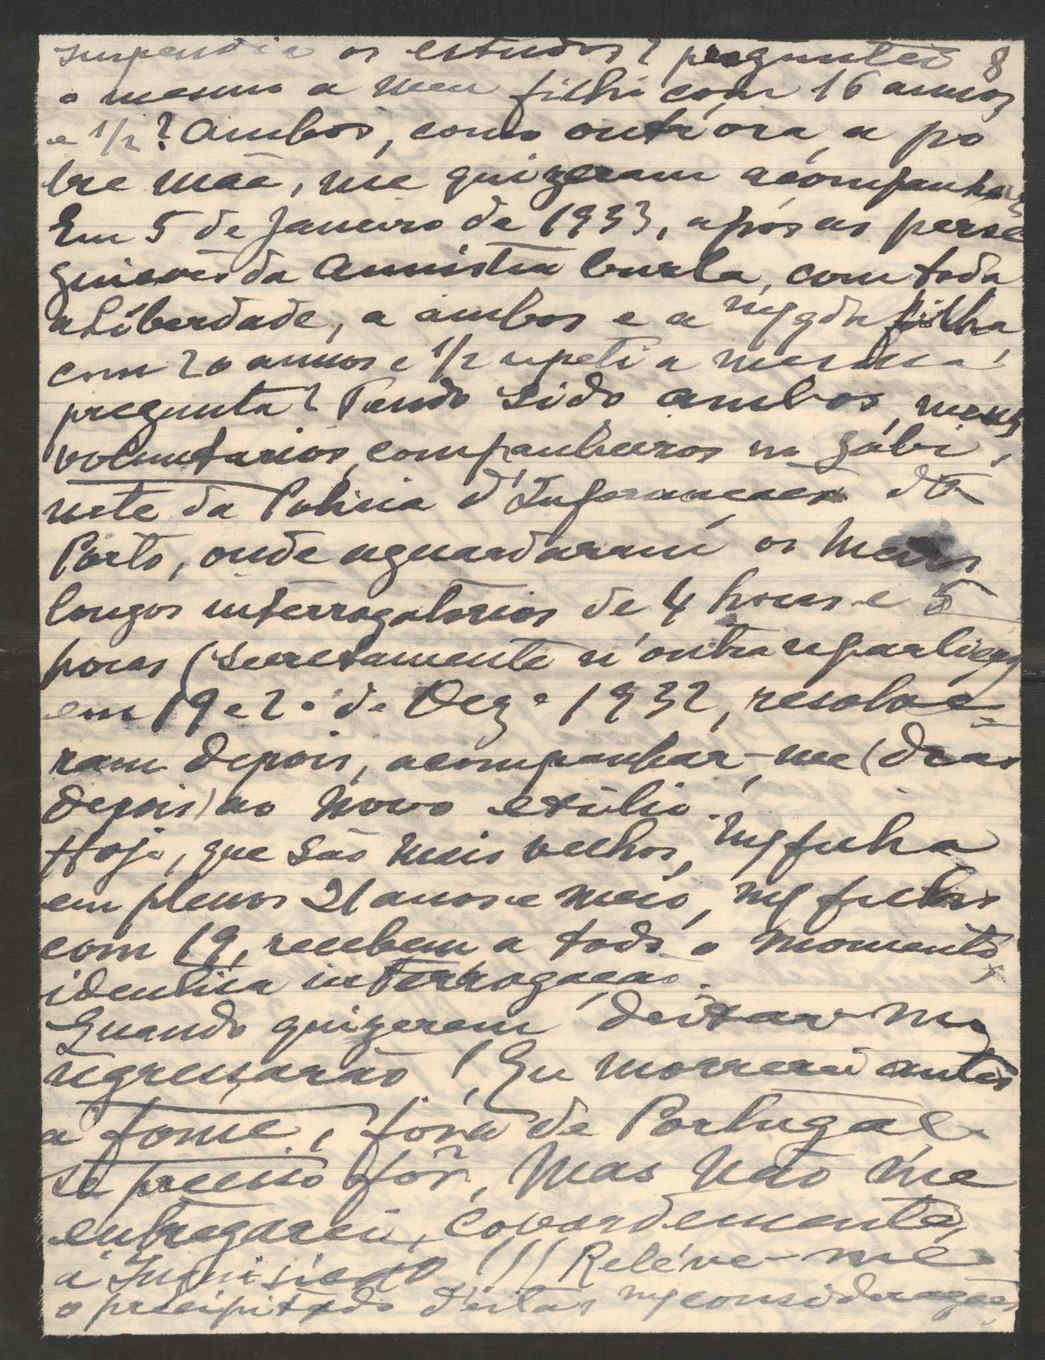 suspendia os estudos? preguntei 8
o mesmo a meu filho com 16 annos
e 1/2? Ambos, como outr'ora, a po
bre mãe, me quizeram acompanhar.
Em 5 de Janeiro de 1933, após as perse
guiçoes da Amnistia burla, com toda
a Liberdade, a ambos e a filha
com 20 annos e 1/2 repeti a mesma
pregunta? Tendo sido ambos, meus
voluntarios, companheiros no gabi,
nete da Policia d'Informaçaes do
Porto, onde aguardaram os meus
longos interrogatorios de 4 horas e 5
horas (secretamente n'outra repartiçaõ
em 19 e 2. de Dezº 1932, resolve
ram depois, acompanhar-me (dias
depois) ao novo exilio.
Hoje, que são mais velhos, mª filha
em plenos 21 anos e meio, meu filho
com 19, recebem a todo o momento,
identica interrogaçao.
Quando quizerem deixar-me
regressarão! Eu morrerei antes
á fome, fóra de Portugal
se preciso fôr, mas não me
entregarei, covardemente,
á Inquisição!!! Reléve-me
o precipitado d'estas considerações,